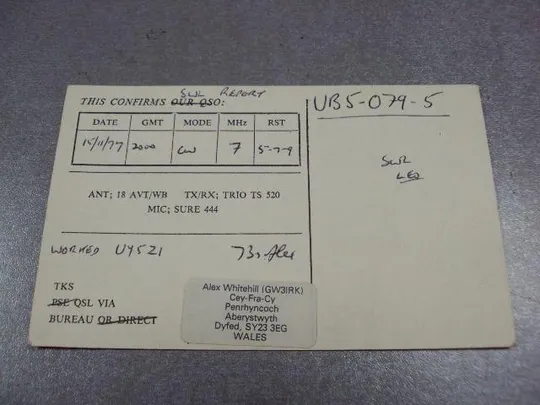 SWL REPORT
THIS CONFIRMS OUR QSO:
DATE GMT MODE MHz RST
15/11/77 2000 CW 7 5-7-9
ANT; 18 AVT/WB TX/RX; TRIO TS 520
MIC; SURE 444
WORKED UY5ZI
73s Alex
TKS
PSE QSL VIA
BUREAU OR DIRECT
Alex Whitehill (GW3IRK)
Cey-Fra-Cy
Penrhyncoch
Aberystwyth
Dyfed, SY23 3EG
WALES
UB5-079-5
SWL
LEO